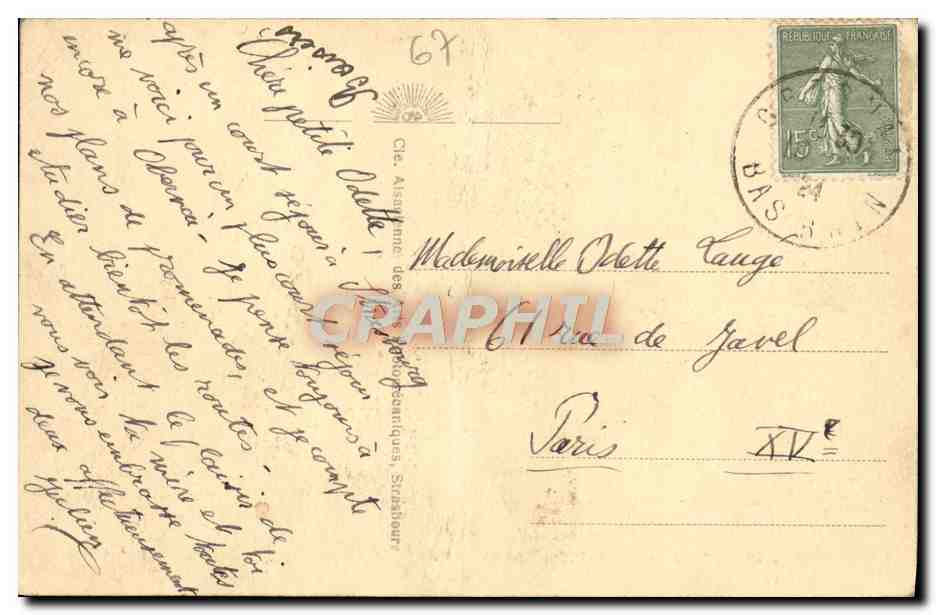 67
RÉPUBLIQUE FRANÇAISE
15c
BAS
24
Cie. Alsacienne des Arts Photomécaniques, Strasbourg
Chère petite Odette,
après un court séjour à Strasbourg
me voici pour un plus court séjour
encore à Obernai. Je pense toujours à
nos plans de promenades, et je compte
étudier bientôt les routes.
En attendant le plaisir de
vous voir, ta mère et toi
je vous embrasse toutes
deux affectueusement
Mademoiselle Odette Lange
61 rue de Javel
Paris XVe
CPRAPHIL